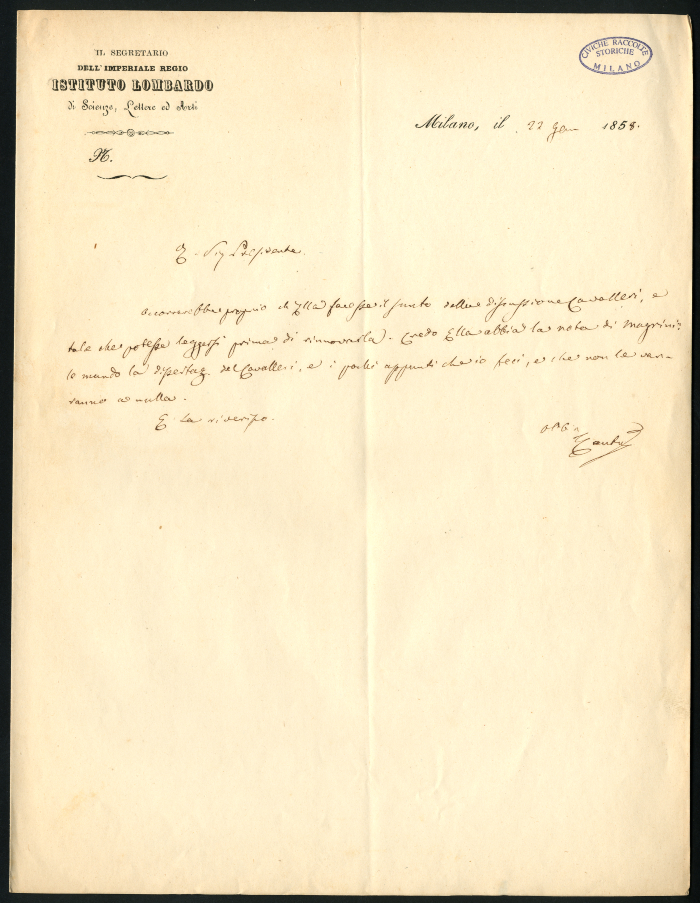 IL SEGRETARIO
DELL'IMPERIALE REGIO
ISTITUTO LOMBARDO
di Scienze, Lettere ed Arti
N.
CIVICHE RACCOLTE
STORICHE
MILANO
Milano, il 22 Gen 1858.
E. Sig Presidente
Occorrerebbe proprio ch'Ella facesse il sunto della discussione Cavalleri, e
tale che potesse leggersi prima di rinnovarla. Credo Ella abbia la nota di Magrini:
le mando la del Cavalleri, e i pochi appunti che io feci, e che non le var-
ranno a nulla.
E La riverisco.
Cantù